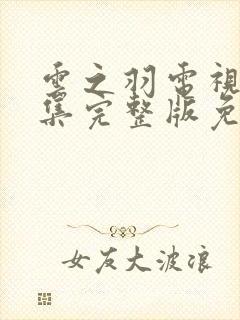 雲之羽電視
集完整版免
女友大波浪